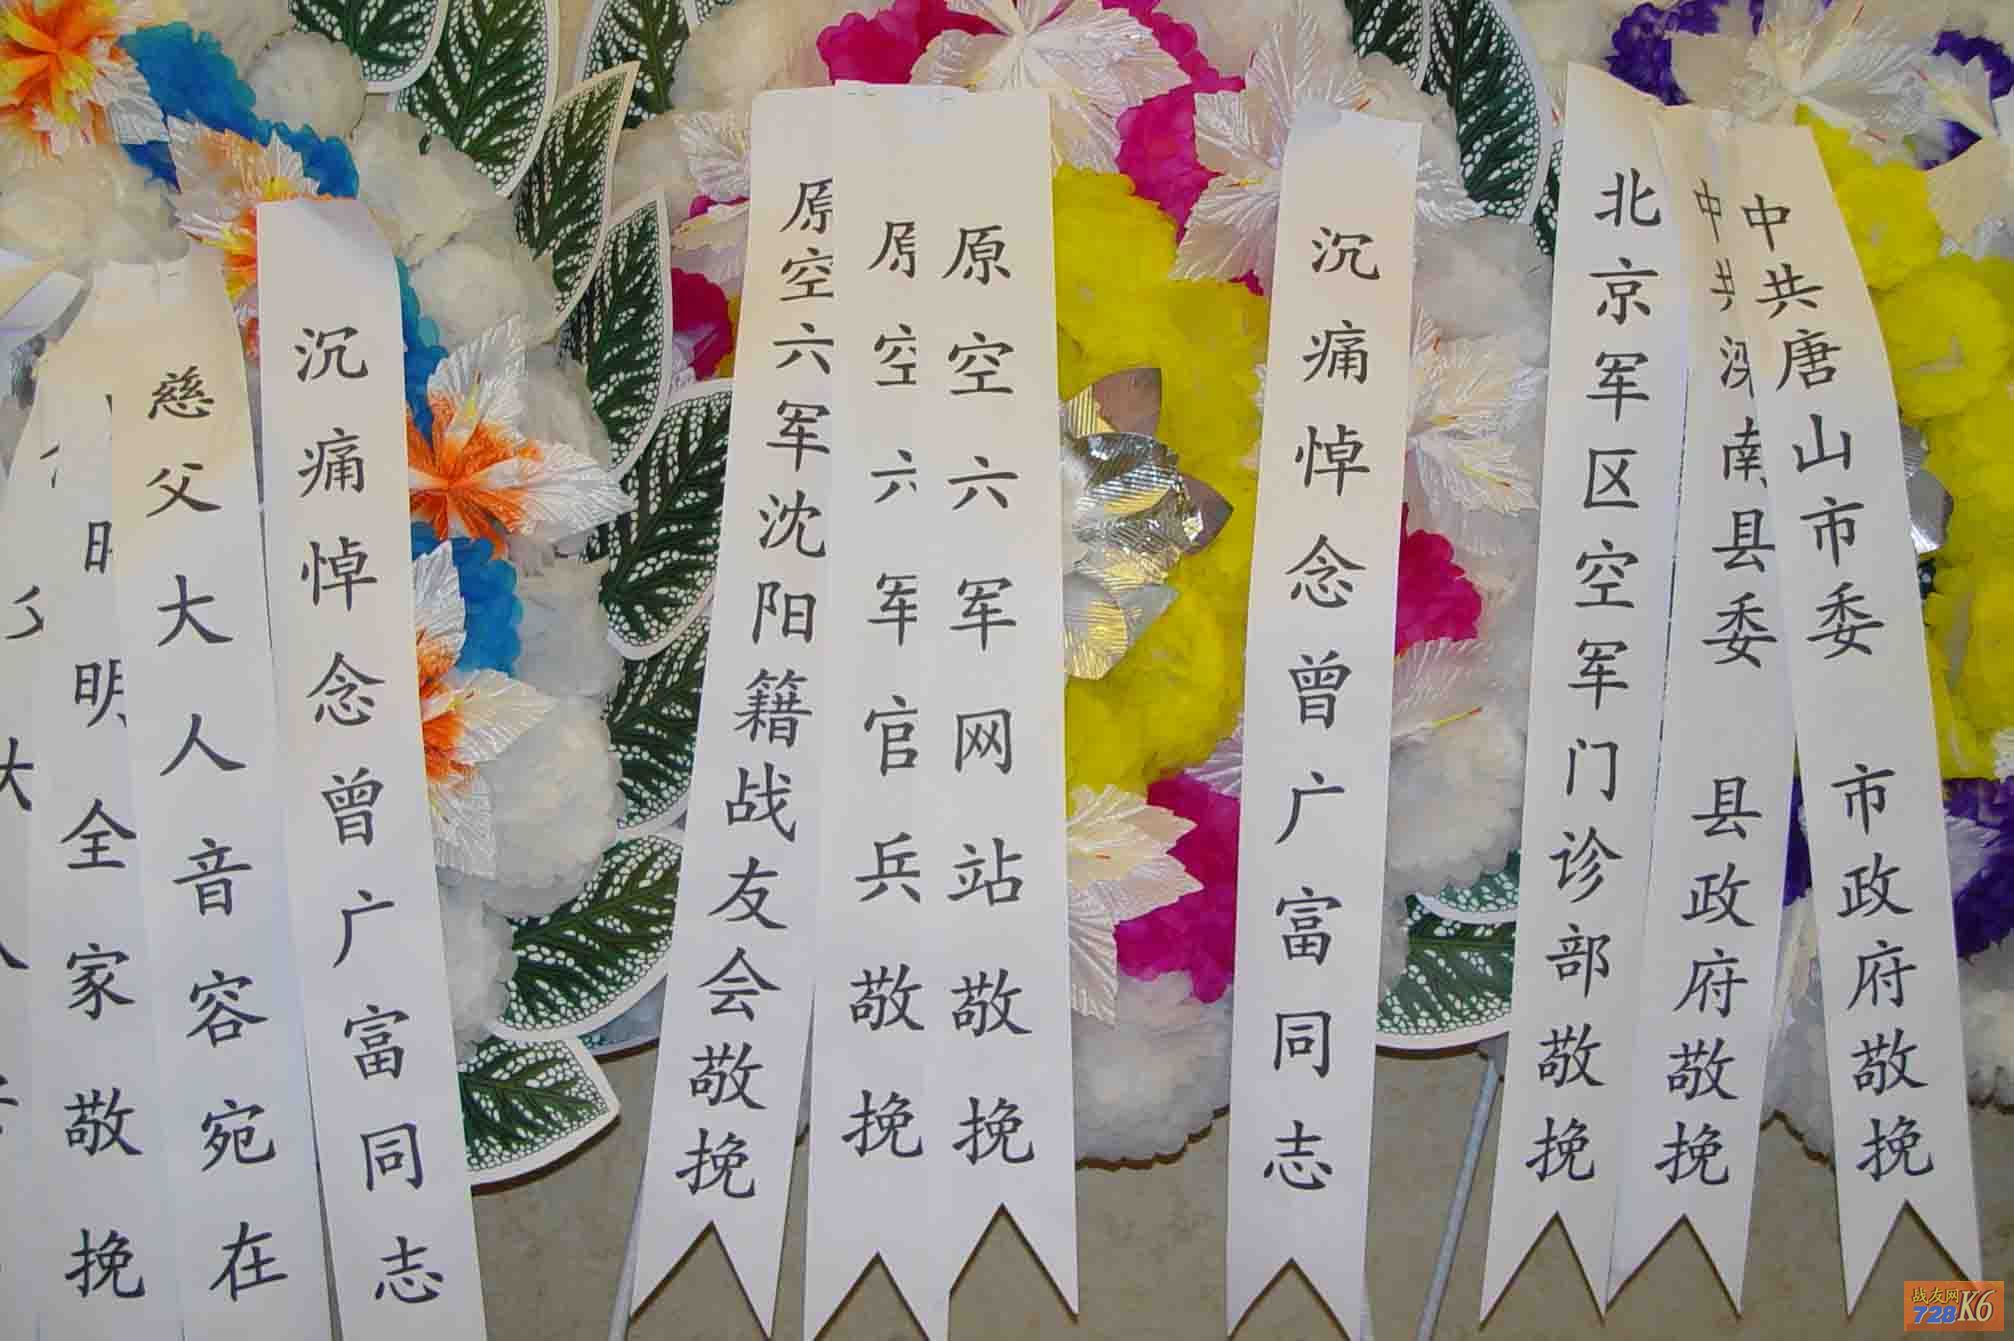 明全家敬挽
慈父大人音容宛在
沉痛悼念曾广富同志
原空六军沈阳籍战友会敬挽
原空六军官兵敬挽
原空六军网站敬挽
沉痛悼念曾广富同志
北京军区空军门诊部敬挽
中共滦南县委 县政府敬挽
中共唐山市委 市政府敬挽
战友网
728K6